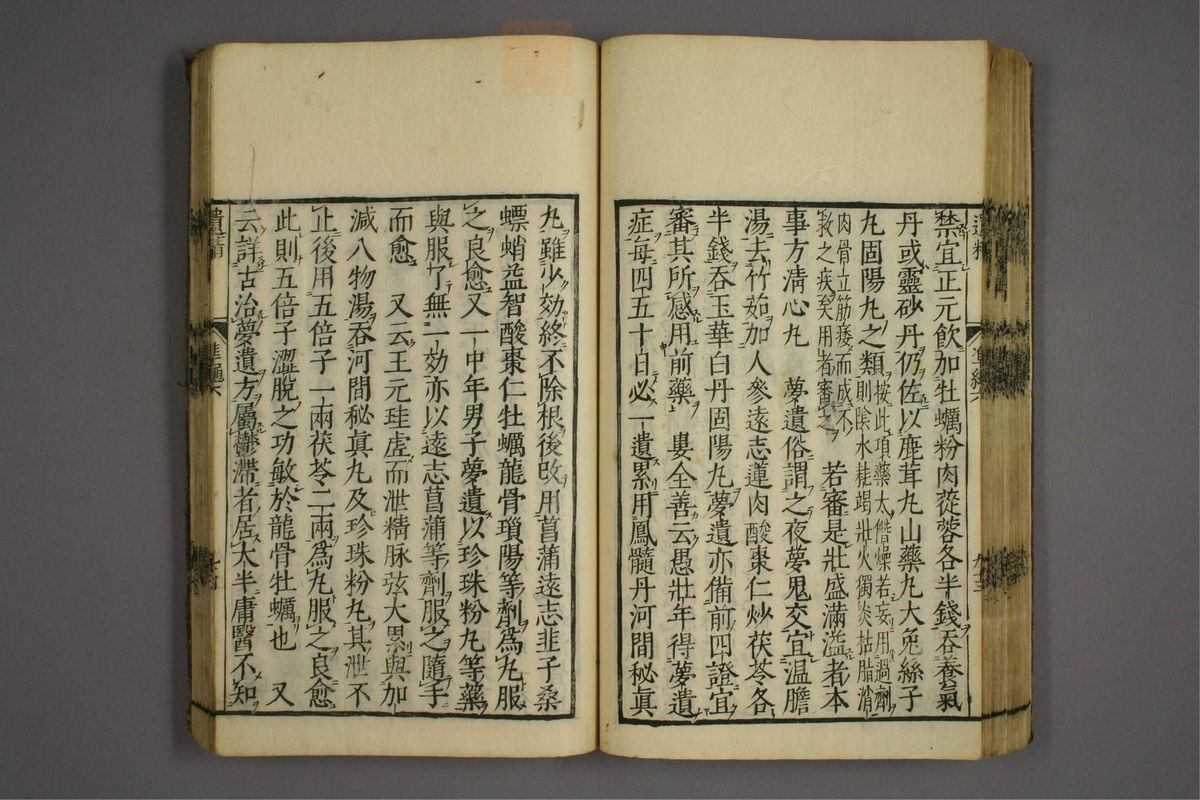 禁宜正元飲加牡蠣粉肉蓯蓉各半錢吞養氣
丹或靈砂丹仍佐以鹿茸丸山藥丸大兔絲子
丸固陽丸之類按此項藥太僭燥若妄用過劑
則陰水耗竭壯火獨炎枯脂消
肉骨立筋痿而成不
救之疾矣用者審之
若審是壯盛滿溢者本
事方淸心丸　夢遺俗謂之夜夢鬼交宜温膽
湯去竹茹加人參遠志蓮肉酸棗仁炒茯苓各
半錢吞玉華白丹固陽丸夢遺亦備前四證宜
審其所感用前藥　婁全善云愚壯年得夢遺
症每四五十日必一遺累用鳳髓丹河間秘眞
丸雖少効終不除根後改用菖蒲遠志韭子桑
螵蛸益智酸棗仁牡蠣龍骨瑣陽等劑爲丸服
之良愈又一中年男子夢遺以珍珠粉丸等藥
與服了無一効亦以遠志菖蒲等劑服之隨手
而愈　又云王元珪虛而泄精脉弦大累與加
減八物湯吞河間秘眞丸及珍珠粉丸其泄不
止後用五倍子一兩茯苓二兩爲丸服之良愈
此則五倍子澀脫之功敏於龍骨牡蠣也　又
云詳古治夢遺方屬鬱滯者居太半庸醫不知
遺精